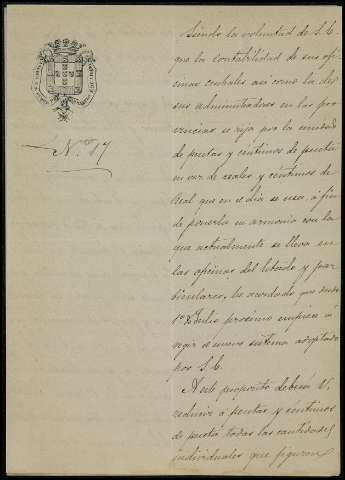 Siendo la voluntad de S. E.
que la contabilidad de sus ofi-
cinas centrales asi como la de
sus administradores en las pro-
vincias se rija por la unidad
de pesetas y centimos de peseta
en vez de reales y centimos de
Real que en el dia se usa, á fin
de ponerla en armonia con la
que actualmente se lleva en
las oficinas del Estado y par-
ticulares, ha acordado que desde
1º de Julio proximo empiece á
regir el nuevo sistema adoptado
por S. E.
A este proposito deberá V.
reducir á pesetas y centimos
de peseta todas las cantidades
individuales que figuran
N.º 17